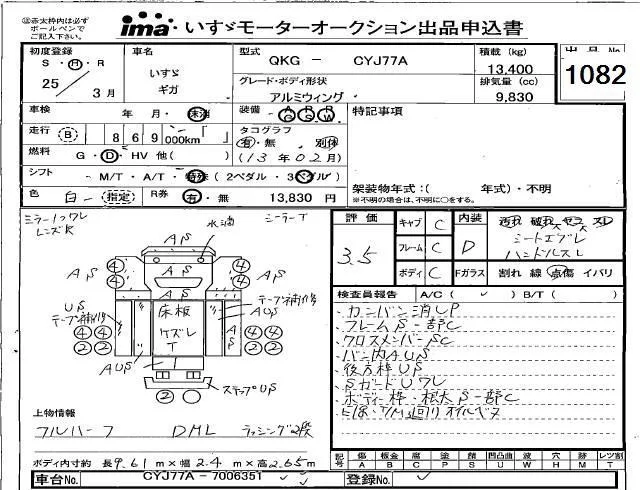 ※赤太枠内は必ず
ボールペンで
ご記入下さい。
ima いすゞモーターオークション出品申込書
出品No
1082
初度登録
S・H・R
25 / 3月
車名
いすゞ
ギガ
型式
QKG － CYJ77A
グレード・ボディ形状
アルミウィング
積載 (kg)
13,400
排気量 (cc)
9,830
車検 年 月・抹消
装備 A/G R/S R/W
特記事項
走行 B 869,000km
タコグラフ
有・無 別体
(13年02月)
燃料 G・D・HV 他( )
シフト M/T・A/T・特殊 (2ペダル・3ペダル)
色 白 (指定)
R券 有・無 13,830 円
架装物年式：( 年式)・不明
※不明の場合は、不明に○をする。
ミラー1つワレ
レンズK
水滴
シーラーT
AS
AS
AS
US
テープ補修
床板
ケズレ
T
テープ補修
AUS
AS
AUS
ステップUS
4 4 2 2
上物情報
フルハーフ DHL ラッシング2段
ボディ内寸約 長9.61m×幅2.4m×高2.65m
車台No. CYJ77A－7006351
登録No.
評価
3.5
キャブ C
フレーム C
ボディ C
内装
D
Fガラス
汚れ 破れ コゲ スレ
シートエブレ
ハンドルスレ
割れ 線 点傷 イバリ
検査員報告 A/C( ✓ ) B/T( )
・カンバン消しP
・フレームS一部C
・クロスメンバーSC
・バン内AUS
・後方枠US
・SガードUワレ
・ボディー枠・根太S一部C
・E/床・T/M廻りオイルベタ
記号
傷 A
板金 B
腐 C
塗 P
錆 S
凹凸曲 U
波 W
穴 H
跡 M
レツ割 T